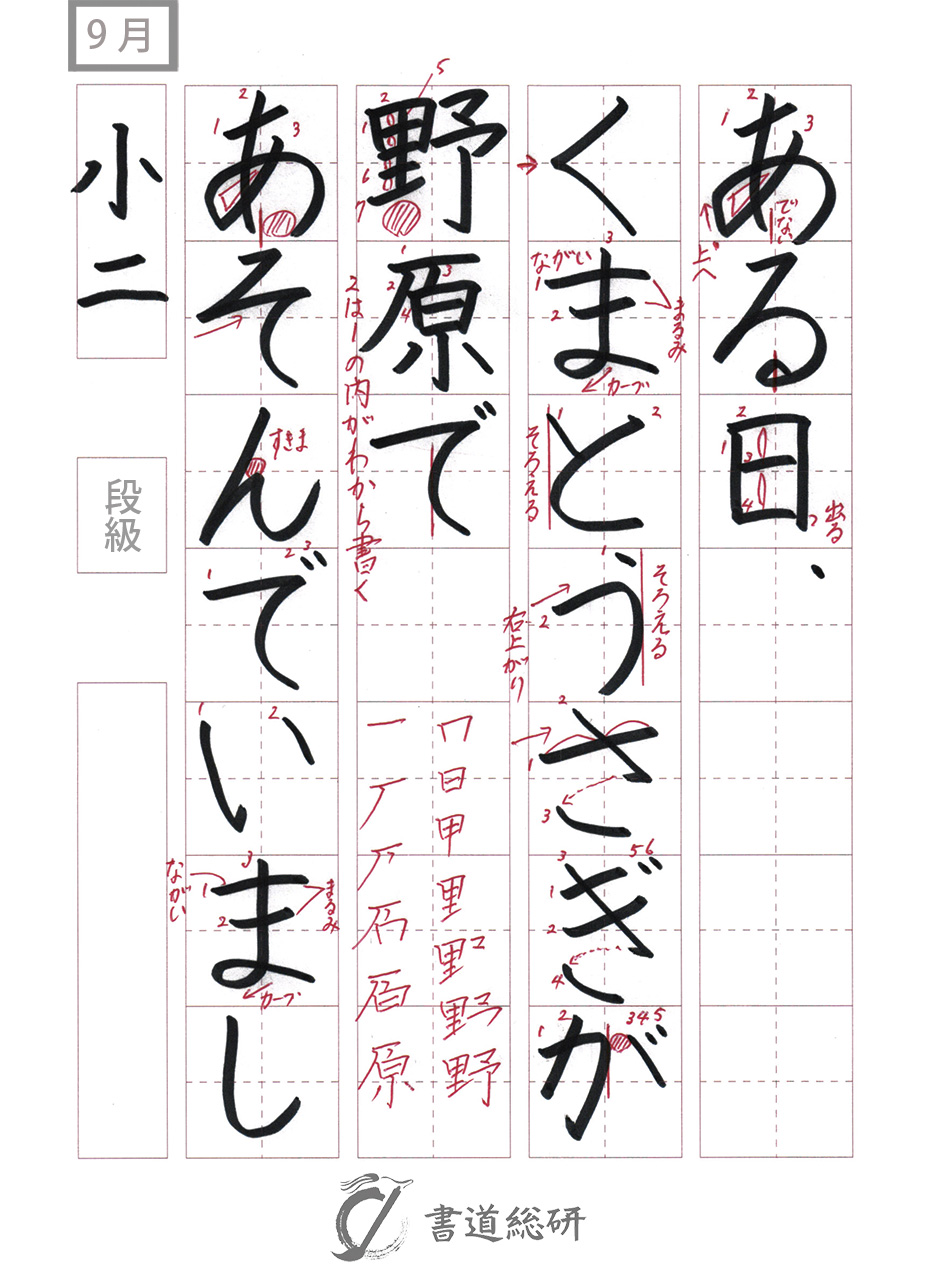 9月
ある日、
くまとうさぎが
野原で
あそんでいまし
小二
段級
でない
上へ
出る
ながい
まるみ
カーブ
そろえる
そろえる
右上がり
2は1の内がわから書く
すきま
ながい
まるみ
カーブ
書道総研